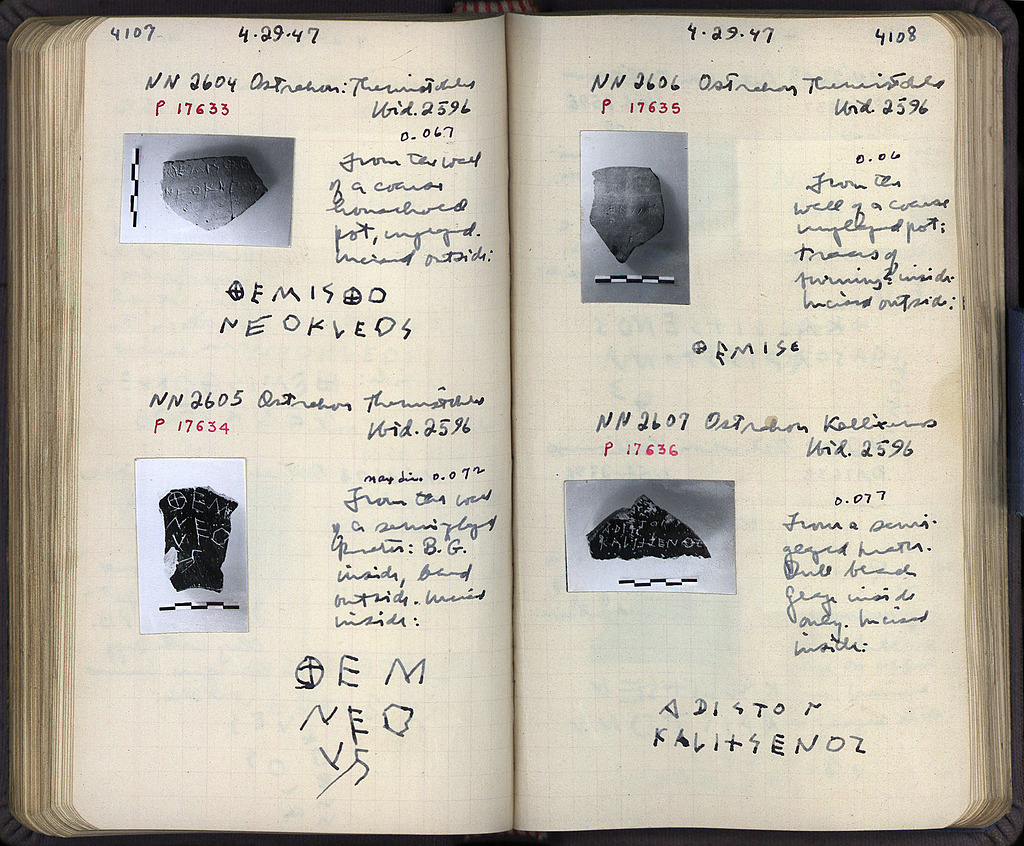 4107 4.29.47
NN 2604 Ostrakon: Themistokles
P 17633 Ibid. 2596
0.067
From the wall
of a coarse
household
pot, unglazed.
Incised outside:
ΘEMISΘO
NEOKLEOS
NN 2605 Ostrakon Themistokles
P 17634 Ibid. 2596
max dim 0.072
From the wall
of a semi-glazed
krater: B.G.
inside, band
outside. Incised
inside:
ΘEM
NEO
VS
4.29.47 4108
NN 2606 Ostrakon Themistokles
P 17635 Ibid. 2596
0.06
From the
wall of a coarse
unglazed pot:
traces of
turning inside.
Incised outside:
ΘEMISE
NN 2607 Ostrakon Kallixenos
P 17636 Ibid. 2596
0.077
From a semi-
glazed krater.
Dull black
glaze inside
only. Incised
inside:
ADISTO
KALI+SENOS